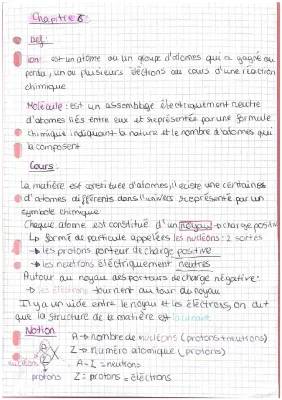 Chapitre 8
Def:
ion: est un atome ou un groupe d'atomes qui a gagné ou
perdu, un ou plusieurs électrons au cours d'une réaction
chimique
Molécule: est un assemblage électriquement neutre
d'atomes liés entre eux et représentés par une formule
chimique indiquant la nature et le nombre d'atomes qui
la composent
Cours:
La matière est constituée d'atomes, il existe une certaines
d'atomes différents dans l'univers représenté par un
symbole chimique
Chaque atome est constitué d'un noyau → charge positive
↳ formé de particule appelées les nucléons: 2 sortes
→ les protons porteur de charge positive
→ les neutrons électriquement neutres
Autour du noyau des porteurs de charge négative:
→ les électrons tournent autour du noyau
Il y a un vide entre le noyau et les électrons, on dit
que la structure de la matière est lacunaire
Notion
A → nombre de nucléons (protons+neutrons)
Z → numéro atomique (protons)
nucléons A
A - Z = neutrons
Z
protons
Z = protons = électrons